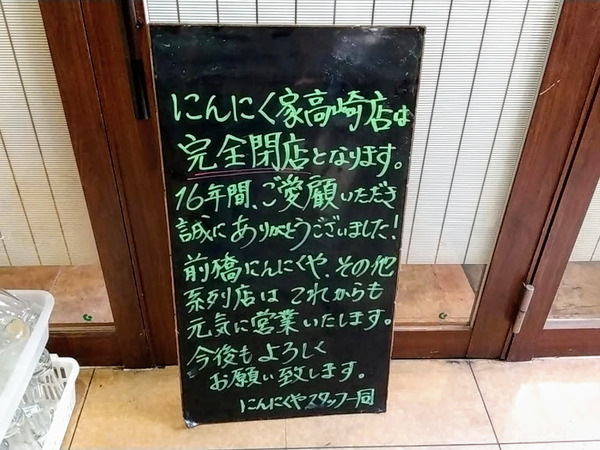 にんにく家高崎店は
完全閉店となります。
16年間、ご愛顧いただき
誠にありがとうございました!
前橋にんにくや、その他
系列店は これからも
元気に営業いたします。
今後もよろしく
お願い致します。
にんにくやスタッフ一同